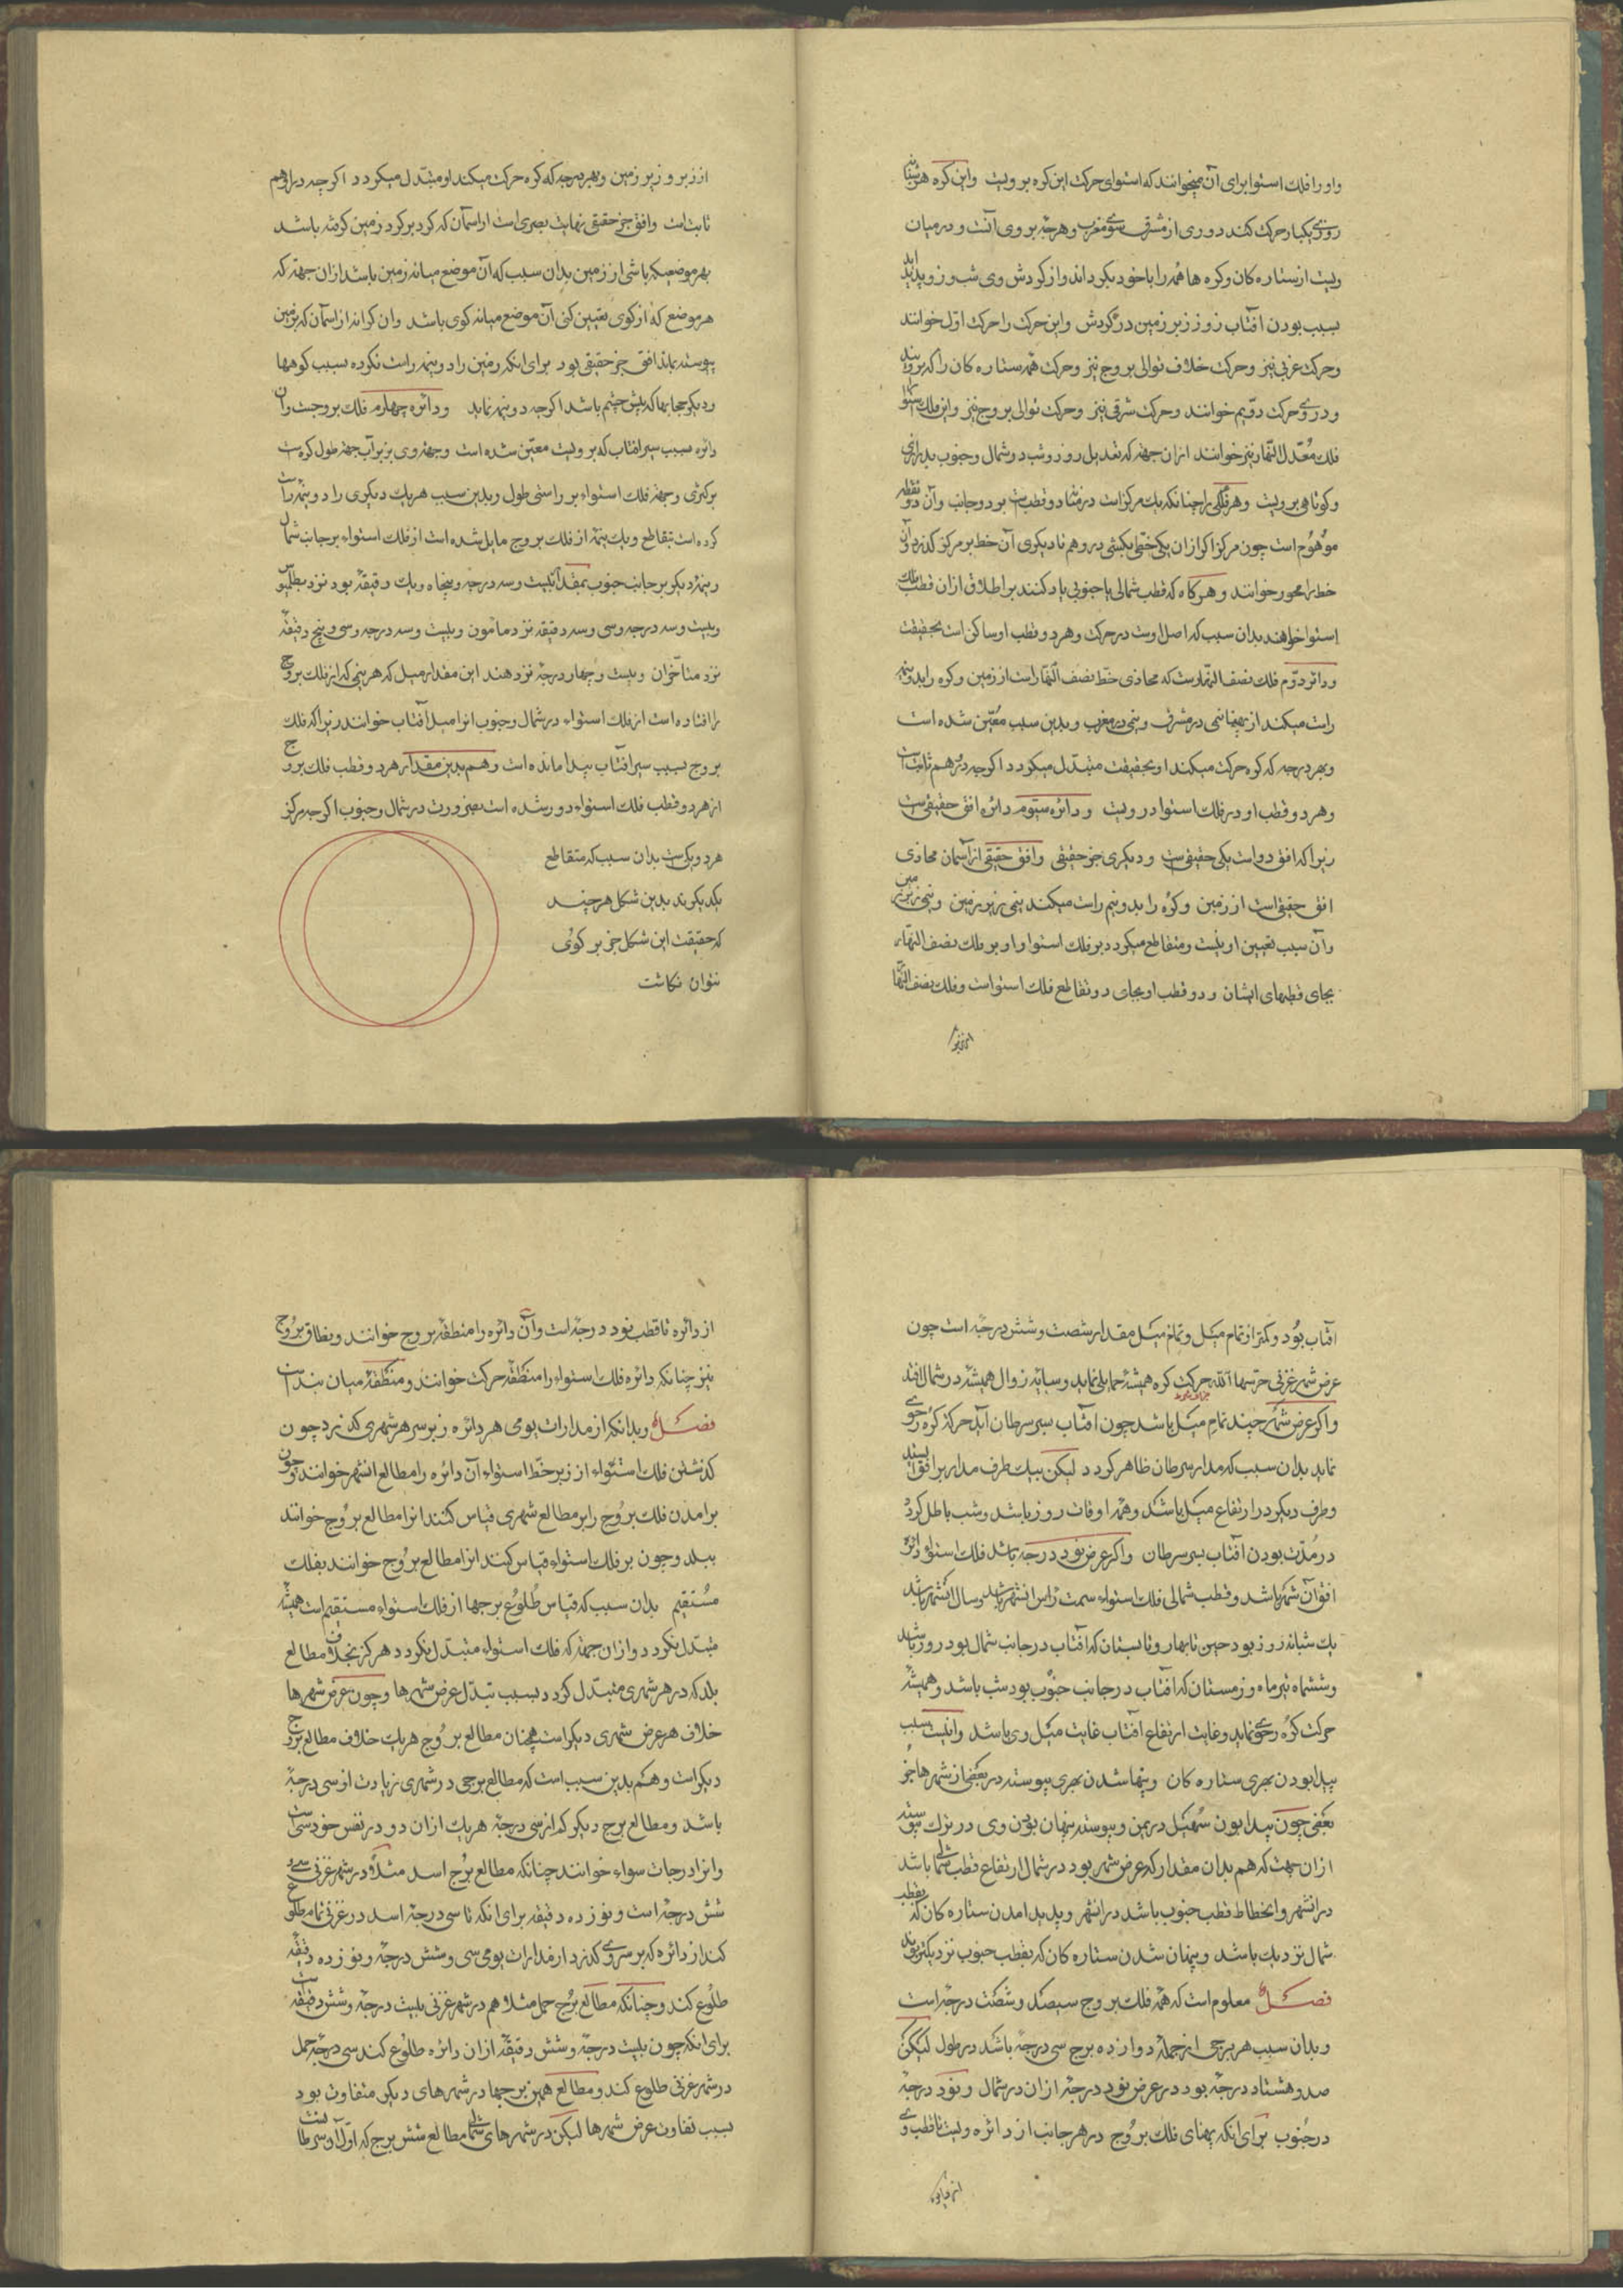 واو را فلك استوا برای آن میخوانند که استوای حرکت این کره برویست واین کره هر شبانه
روزی یکبار حرکت کند دوری از مشرق سوی مغرب وهرچه بروی آنست ودرمیان
ویست از ستاره کان وکره ها همه را باخود بگرداند واز کردش وی شب وروز پدید اید
بسبب بودن افتاب زوز زبر زمین در کردش واین حرکت را حرکت اوّل خوانند
وحرکت غربی نیز وحرکت خلاف توالی بروج نیز وحرکت همه ستاره کان را که برویند
ودر وی حرکت دوّیم خوانند وحرکت شرقی نیز وحرکت توالی بروج نیز واین فلك استوا را
فلك مُعّدل النّهار نیز خوانند ازان جهة که تعدیل روز وشب در شمال وجنوب بدرازی
وکوتاهی برویست وهر فلکی را چنانکه یك مرکز است درمیان دو قطبست بردوجانب وآن دو نقطه
موُهُوم است چون مرکز اکر ازان یکی خطی بکشی در وهم تا دیکری آن خط بر مرکز کذرد وآن
خط را محور خوانند وهرکاه که قطب شمالی یا جنوبی یاد کنند بر اطلاق ازان قطب فلك
استوا خواهند بدان سبب که اصل اوست در حرکت وهر دو قطب او ساکن است بحقیقت
ودائر دوّم فلك نصف النّهارست که محاذی خطّ نصف النّهار است از زمین وکره را بدونیم
راست میکند از پهنا نیمی در مشرق ونیمی در مغرب وبدین سبب مُعیّن شده است
وبهر درجه که کره حرکت میکند او بحقیقت متبدّل میکردد اکرچه در وهم ثابت است
وهر دو قطب او در فلك استوا درویست ودائره سیّوم دائره افق حقیقی است
زیرا که افق دو است یکی حقیقی است ودیکری جز حقیقی وافق حقیقی از آسمان محاذی
افق حقیقی است از زمین وکره را بدونیم راست میکند نیمی زیر زمین ونیمی زبر زمین
وآن سبب تعیین اویست ومتقاطع میکردد بر فلك استوا واو بر فلك نصف النهار
بجای قطبهای ایشان ودو قطب او بجای دو تقاطع فلك استواست وفلك نصف النّهار
از زبر وزیر زمین وبهر درجه که کره حرکت میکند او متبّدل میکردد اکرچه در وهم
ثابت است وافق جز حقیقی نهایت بصری است از اسمان که کرد برکرد زمین کرفته باشد
بهر موضعیکه باشی از زمین بدان سبب که آن موضع میانه زمین باشد ازان جهة که
هر موضع که از کوی تعیین کنی آن موضع میانه کوی باشد وان کرانه از اسمان که بزمین
پیوسته نماید افق جز حقیقی بود برای انکه زمین را دونیمه راست نکرده بسبب کوهها
ودیکر حجابها که پیش چشم باشد اکرچه دونیمه نماید ودائره چهارم فلك بروجست وآن
دائره بسبب سیر افتاب که برویست معیّن شده است وجهة وی بزبرآب جهة طول کره است
برکژی وجهة فلك استواء بر راستی طول وبدین سبب هر یك دیکری را دونیمه راست
کرده است بتقاطع ویك نیمه از فلك بروج مایل شده است از فلك استواء بر جانب شمال
ونیمه دیکر بر جانب جنوب بمقدار بیست وسه درجه وپنجاه ویك دقیقه بود نزد بطلمیوس
وبیست وسه درجه وسی وسه دقیقه نزد مامون وبیست وسه درجه وسی وپنج دقیقه
نزد متاخّران وبیست وچهار درجه نزد هند این مقدار میل که هر نیمی که از فلك بروج
را افتاده است از فلك استواء در شمال وجنوب انرا میل آفتاب خوانند زیرا که فلك
بروج بسبب سیر افتاب پیدا مانده است وهم بدین مقدار هر دو قطب فلك بروج
از هر دو قطب فلك استواء دور شده است بضرورت در شمال وجنوب اکرچه مرکز
هر دو یکیست بدان سبب که متقاطع
یکدیکرند بدین شکل هرچند
که حقیقت این شکل جز بر کوُی
نتوان نکاشت
افتاب بُود وکمتر از تمام میَل وتمام میَل مقدار شصت وشش درجه است چون
عرض شهر غزنی حرسها اللّه حرکت کره همیشه حمایلی نماید وسایه زوال همیشه در شمال افتد
واکر عرض شهر چند تمام میَل باشد چون افتاب بسر سرطان آید حرکة کُره رحوی
نماید بدان سبب که مدار سرطان ظاهر کردد لیکن بیك طرف مدار بر افق ایستد
وطرف دیکر در ارتفاع میَل باشد وهمه اوقات روز باشد وشب باطل کردد
در مُدّت بودن آفتاب بسر سرطان واکر عرض نود درجه باشد فلك استواء دائره
افق آن شهر باشد وقطب شمالی فلك استواء سمت راس انشهر باشد وسال انشهر باشد
یك شبانه روز بود چنین تا بهار وتابستان که آفتاب در جانب شمال بود روز باشد
وششماه تیرماه وزمستان که افتاب در جانب جنوب بود شب باشد وهمیشه
حرکت کره رحوی نماید وغایت ارتفاع افتاب غایت میَل وی باشد واینست سبب
پیدا بودن بهری ستاره کان وپنها شدن بهری پیوسته در بعضی از شهرها جز
بعضی چون پیدا بودن سُهیَل در یمن وپیوسته پنهان بودن وی در ترك پیوسته
ازان جهت که هم بدان مقدار که عرض شهر بود در شمال ارتفاع قطب شمالی باشد
درانشهر وانخطاط قطب جنوب باشد درانشهر وپدید امدن ستاره کان که بقطب
شمال نزدیك باشد وپنهان شدن ستاره کان که بقطب جنوب نزدیکتر بوند
فصــل معلوم است که همه فلك بروج سیصد وشصت درجه است
وبدان سبب هر برجی از جمله دوازده برج سی درجه باشد در طول لیکن
صد وهشتاد درجه بود در عرض نود درجه ازان در شمال ونود درجه
در جنوب برای انکه پهنای فلك بروُج در هر جانب از دائره ویست تا قطب وی
از دائره تا قطب نود درجه است وآن دائره را منطقه بروج خوانند ونطاق بروج
نیز چنانکه دائره فلك استواء را منطقه حرکت خوانند ومنطقه میان بند است
فصــل وبدانکه از مدارات یومی هر دائره زبر سر هر شهری کذرد چون
کذشتن فلك استواء از زبر خط استواء آن دائره را مطالع انشهر خوانند وچون
برامدن فلك بروُج را بر مطالع شهری قیاس کنند انرا مطالع بروُج خوانند
ببلد وچون بر فلك استواء قیاس کنند انرا مطالع بروُج خوانند بفلك
مُستقیم بدان سبب که قیاس طُلوُع برجها از فلك استواء مستقیم است همیشه
متبدّل نکردد وازان جهة که فلك استواء متبدّل نکردد هرکز بخلاف مطالع
بلد که در هر شهری متبدّل کردد بسبب تبدّل عرض شهرها وچون عرض شهرها
خلاف هر عرض شهری دیکر است همچنان مطالع بروُج هر یك خلاف مطالع برج
دیکر است وهم بدین سبب است که مطالع برجی در شهری زیادت از سی درجه
باشد ومطالع برج دیکر کم از سی درجه هر یك ازان دو در نفس خود سی است
وانرا درجات سواء خوانند چنانکه مطالع برُج اسد مثلاً در شهر غزنی سی و
شش درجه است ونوزده دقیقه برای انکه تا سی درجه اسد در غزنی تمام طلوع
کند از دائره که بر سر وی کذرد از مدارات یومی سی وشش درجه ونوزده دقیقه
طلوُع کند وچنانکه مطالع برُج حمل مثلا هم در شهر غزنی بیست درجه وشش دقیقه است
برای انکه چون بیست درجه وشش دقیقه ازان دائره طلوُع کند سی درجه حمل
در شهر غزنی طلوع کند ومطالع همین برجها در شهرهای دیکر متفاوت بود
بسبب تفاوت عرض شهرها لیکن در شهرهای شمالی مطالع شش برج که اوّل آن سرطانست